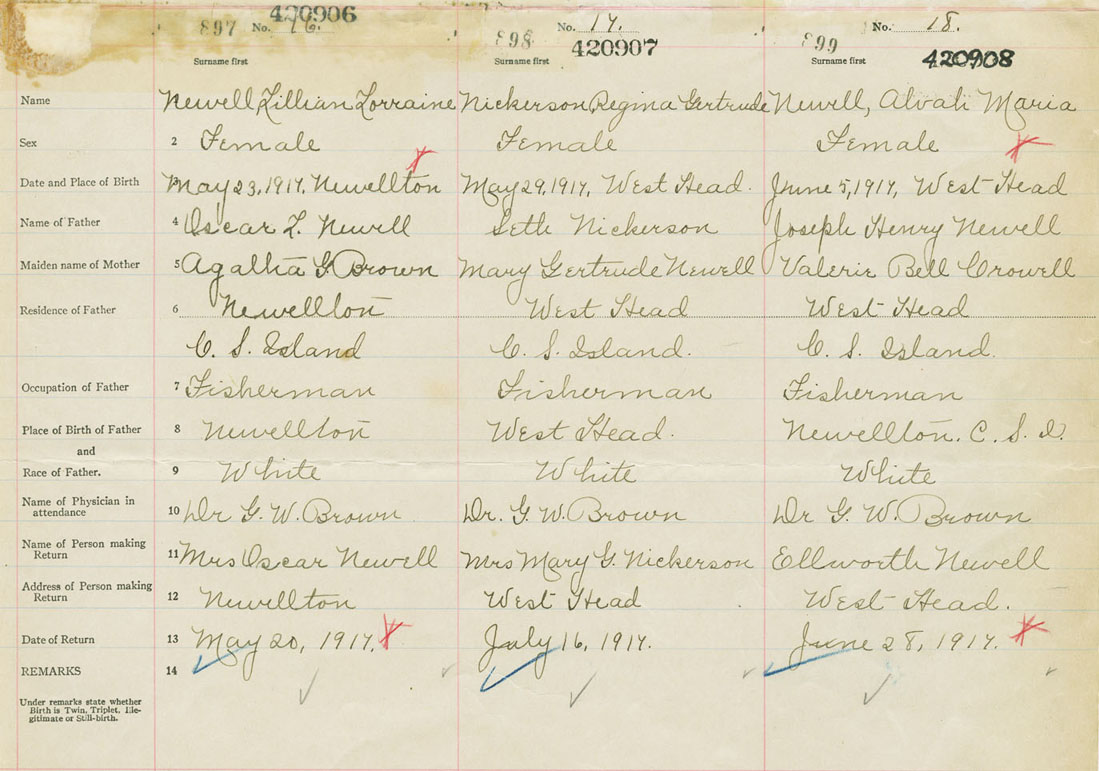 420906 897 No. 16. Surname first
No. 17. 898 420907 Surname first
No. 18. 899 420908 Surname first
Name Newell Lillian Lorraine Nickerson Regina Gertrude Newell, Alvah Maria
Sex 2 Female Female Female
Date and Place of Birth May 23, 1917, Newellton May 29, 1917, West Head. June 5, 1917, West Head
Name of Father 4 Oscar L. Newell Seth Nickerson Joseph Henry Newell
Maiden name of Mother 5 Agatha G. Brown Mary Gertrude Newell Valerie Bell Crowell
Residence of Father 6 Newellton West Head West Head
C. S. Island C. S. Island. C. S. Island.
Occupation of Father 7 Fisherman Fisherman Fisherman
Place of Birth of Father 8 Newellton West Head. Newellton. C. S. I.
and
Race of Father. 9 White White White
Name of Physician in attendance 10 Dr G. W. Brown Dr. G. W. Brown Dr G. W. Brown
Name of Person making Return 11 Mrs Oscar Newell Mrs Mary G. Nickerson Ellworth Newell
Address of Person making Return 12 Newellton West Head West Head.
Date of Return 13 May 20, 1917. July 16, 1917. June 28, 1917.
REMARKS 14
Under remarks state whether
Birth is Twin, Triplet, Ille-
gitimate or Still-birth.